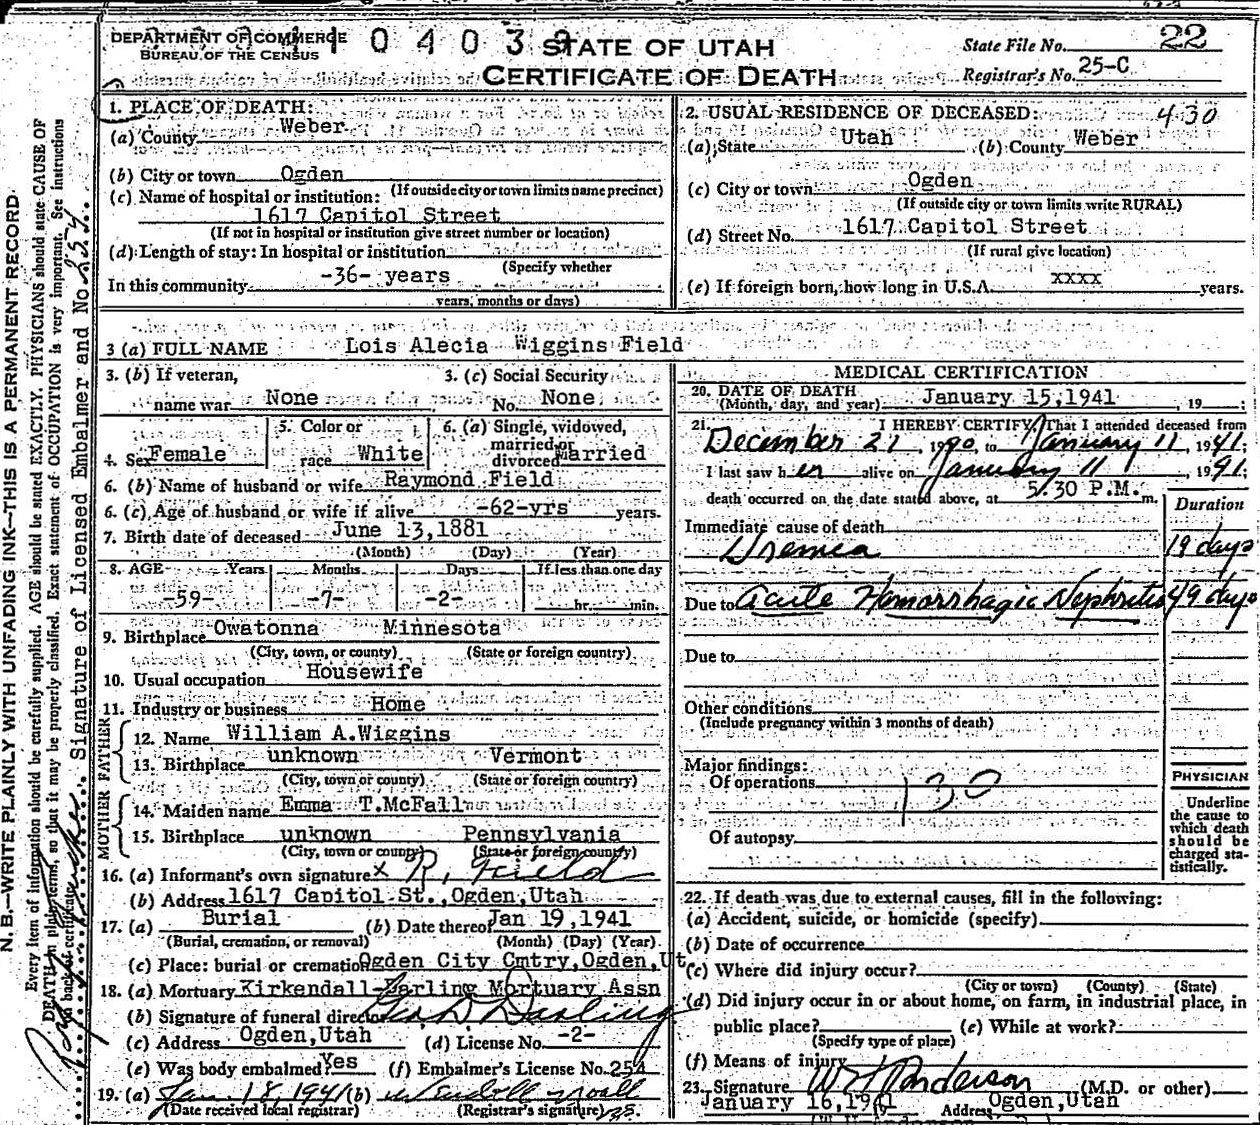 DEPARTMENT OF COMMERCE
BUREAU OF THE CENSUS
STATE OF UTAH
CERTIFICATE OF DEATH
State File No. 22
Registrar's No. 25-C
1. PLACE OF DEATH:
(a) County Weber
(b) City or town Ogden
(If outside city or town limits name precinct)
(c) Name of hospital or institution:
1617 Capitol Street
(If not in hospital or institution give street number or location)
(d) Length of stay: In hospital or institution
(Specify whether
In this community -36- years
years, months or days)
2. USUAL RESIDENCE OF DECEASED: 430
(a) State Utah (b) County Weber
(c) City or town Ogden
(If outside city or town limits write RURAL)
(d) Street No. 1617 Capitol Street
(If rural give location)
(e) If foreign born, how long in U.S.A. xxxx years.
3 (a) FULL NAME Lois Alecia Wiggins Field
3. (b) If veteran,
name war None
3. (c) Social Security
No. None
4. Sex Female
5. Color or
race White
6. (a) Single, widowed,
married or
divorced Married
6. (b) Name of husband or wife Raymond Field
6. (c) Age of husband or wife if alive -62-yrs years.
7. Birth date of deceased June 13,1881
(Month) (Day) (Year)
8. AGE Years Months Days If less than one day
-59- -7- -2- hr. min.
9. Birthplace Owatonna Minnesota
(City, town, or county) (State or foreign country)
10. Usual occupation Housewife
11. Industry or business Home
FATHER
12. Name William A.Wiggins
13. Birthplace unknown Vermont
(City, town or county) (State or foreign country)
MOTHER
14. Maiden name Emma T.McFall
15. Birthplace unknown Pennsylvania
(City, town or county) (State or foreign country)
16. (a) Informant's own signature x R. Field
(b) Address 1617 Capitol St.,Ogden,Utah
17. (a) Burial (b) Date thereof Jan 19,1941
(Burial, cremation, or removal) (Month) (Day) (Year)
(c) Place: burial or cremation Ogden City Cmtry,Ogden,Ut.
18. (a) Mortuary Kirkendall-Darling Mortuary Assn
(b) Signature of funeral director Geo D. Darling
(c) Address Ogden,Utah (d) License No. -2-
(e) Was body embalmed? Yes (f) Embalmer's License No. 254
19. (a) Jan. 18, 1941 (b)
(Date received local registrar) (Registrar's signature)
MEDICAL CERTIFICATION
20. DATE OF DEATH January 15,1941, 19
(Month, day, and year)
21. I HEREBY CERTIFY, That I attended deceased from
December 21, 1940, to January 11, 1941,
I last saw her alive on January 11, 1941,
death occurred on the date stated above, at 5:30 P.M. m.
Duration
Immediate cause of death
Uremea 19 days
Due to Acute Hemorrhagic Nephritis 49 days
Due to
Other conditions
(Include pregnancy within 3 months of death)
Major findings:
Of operations
130
Of autopsy
PHYSICIAN
Underline
the cause to
which death
should be
charged sta-
tistically.
22. If death was due to external causes, fill in the following:
(a) Accident, suicide, or homicide (specify)
(b) Date of occurrence
(c) Where did injury occur?
(City or town) (County) (State)
(d) Did injury occur in or about home, on farm, in industrial place, in
public place? (e) While at work?
(Specify type of place)
(f) Means of injury
23. Signature W H Anderson (M.D. or other)
January 16,1941 Address Ogden,Utah
N. B.—WRITE PLAINLY WITH UNFADING INK—THIS IS A PERMANENT RECORD
Every item of information should be carefully supplied. AGE should be stated EXACTLY. PHYSICIANS should state CAUSE OF
DEATH in plain terms, so that it may be properly classified. Exact statement of OCCUPATION is very important. See instructions
on back of certificate.
Signature of Licensed Embalmer and No. 254